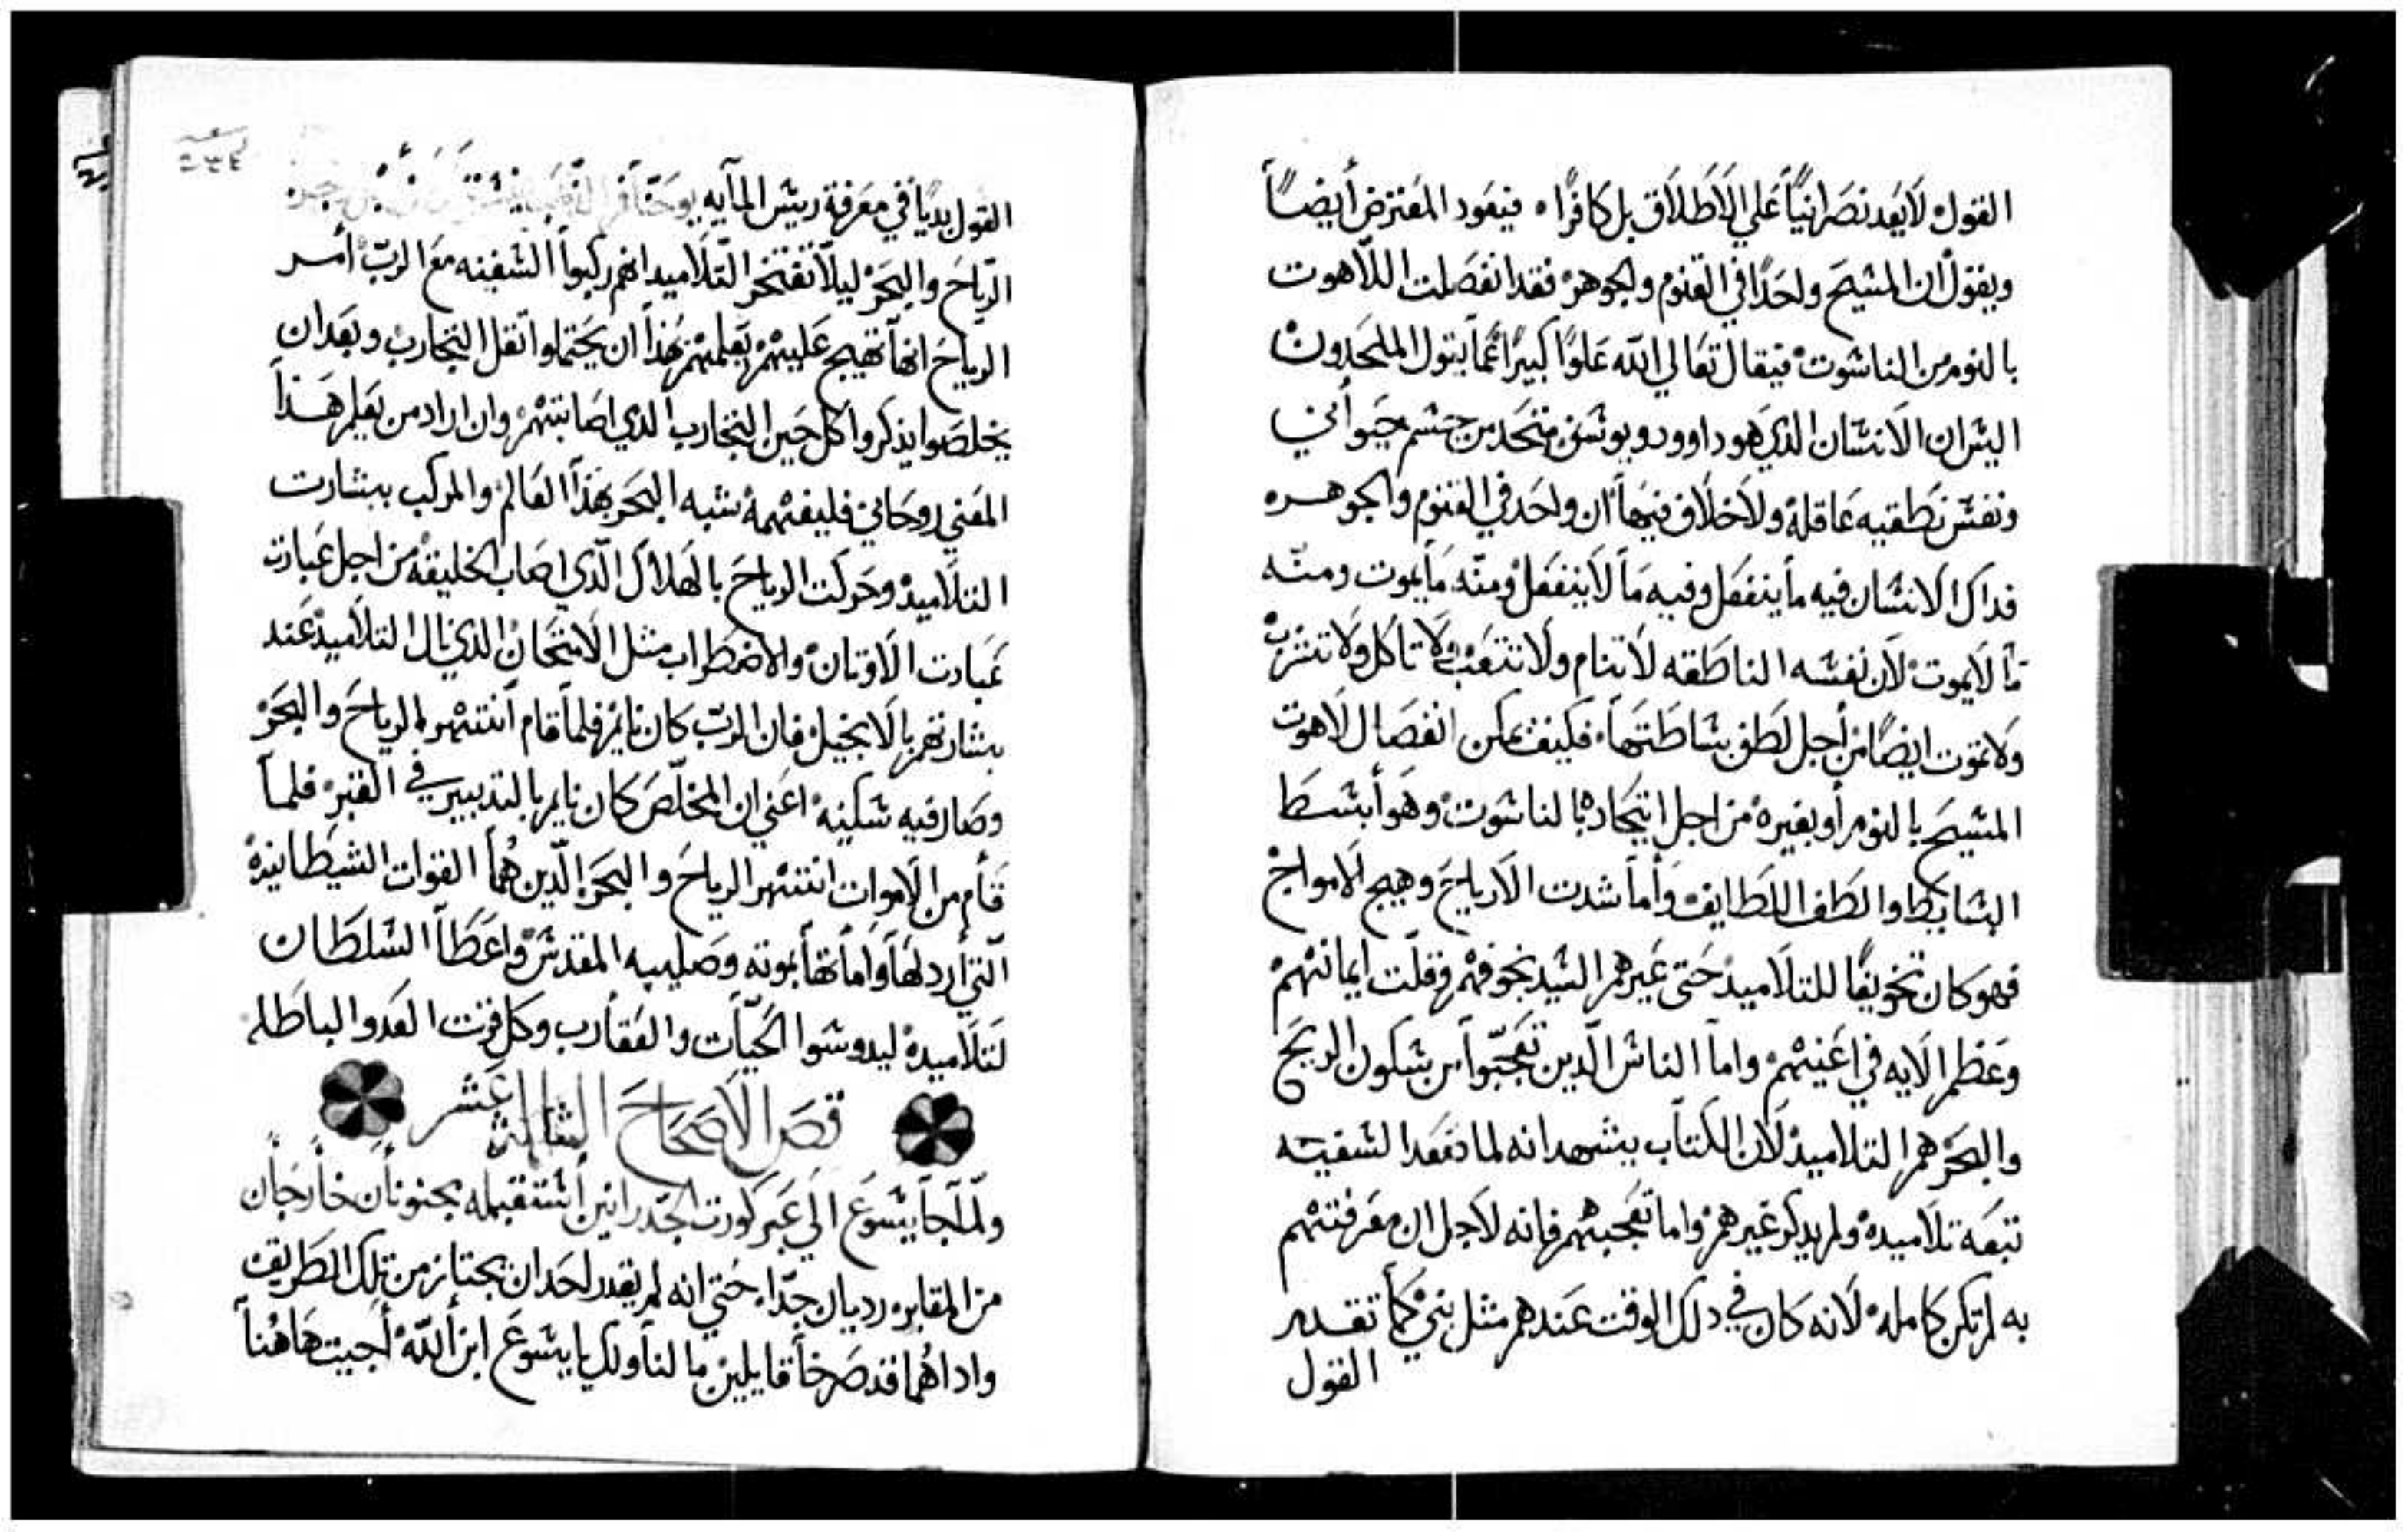 القول لا يعد نصرانيًا علي الاطلاق بل كافرًا ۰ فيعود المعترض أيضًا
ويقول ان المشيح واحدًا في القنوم والجوهر فقد انفصلت اللاهوت
بالنوم من الناشوت فيقال تعالي الله علوًا كبيرًا عما يقول الملحدون
اليش ان الانشان الذي هو داوود وبوشف متحد من جشم حيواني
ونفش نطقيه عاقلة ولا خلاف فيها ان واحد في القنوم والجوهره
فداك الانشان فيه ما ينفعل وفيه ما لا ينفعل ومنه ما يموت ومنه
ما لا يموت لان نفشه الناطقه لا تنام ولا تتعب ولا تاكل ولا تشرب
ولا تموت ايضًا من أجل لطف بشاطتها فكيف يمكن انفصال لاهوت
المشيح بالنوم أو بغيره من اجل اتحاده بالناشوت وهو أبشط
البشايط والطف اللطايف وأما شدت الارياح وهيج الامواج
فهو كان تخويفًا للتلاميد حتى غيرهم الشيد بخوفهم وقلت ايمانهم
وعظم الايه في اعينهم واما الناش الدين تعجبوا من شكون الريح
والبحر هم التلاميد لان الكتاب يشهد انه لما صعد الشفينه
تبعه تلاميده ولم يدكر غيرهم واما تعجبهم فانه لاجل ان معرفتهم
به لم تكن كامله لانه كان في دلك الوقت عندهم مثل نبي كما تقدم
القول
القول بديًا في معرفة ريش المآيه يوحنا
الرياح والبحر ليلا تفتخر التلاميد انهم ركبوا الشفينه مع الرب أمر
الرياح انها تهيج عليهم يعلمهم بهذا ان يحتملوا تقل التجارب وبعد ان
يخلصوا يذكروا كل حين التجارب الدي اصابتهم وان اراد من يعلم هذا
المعني روحاني فليفهمه شبه البحر بهذا العالم والمركب ببشارت
التلاميد وحركت الرياح بالهلاك الذي اصاب الخليقه من اجل عبادت
عبادت الاوتان والاضطراب مثل الامتحان الذي نال التلاميد عند
بشارتهم بالانجيل فان الرب كان نايم فلما قام أنتهر الرياح والبحر
وصار فيه شكينه اعني ان المخلص كان نايم بالتدبير في القبر فلما
قام من الاموات انتهر الرياح والبحر الدين هما القوات الشيطانيه
التي أردلها واماتها بموته وصليبه المقدش واعطا الشلطان
لتلاميده ليدوشوا الحيات والعقارب وكل قوت العدو الباطله
قصر الاصحاح الثالث عشر
ولما جا يشوع الي عبر كورت الجدرانين أشتقبله مجنونان خارجان
من المقابره رديان جدًا حتي انه لم يقدر احد ان يجتاز من تلك الطريق
وادا هما قد صرخا قايلين ما لنا ولك يا يشوع ابن الله أجيت هاهنا